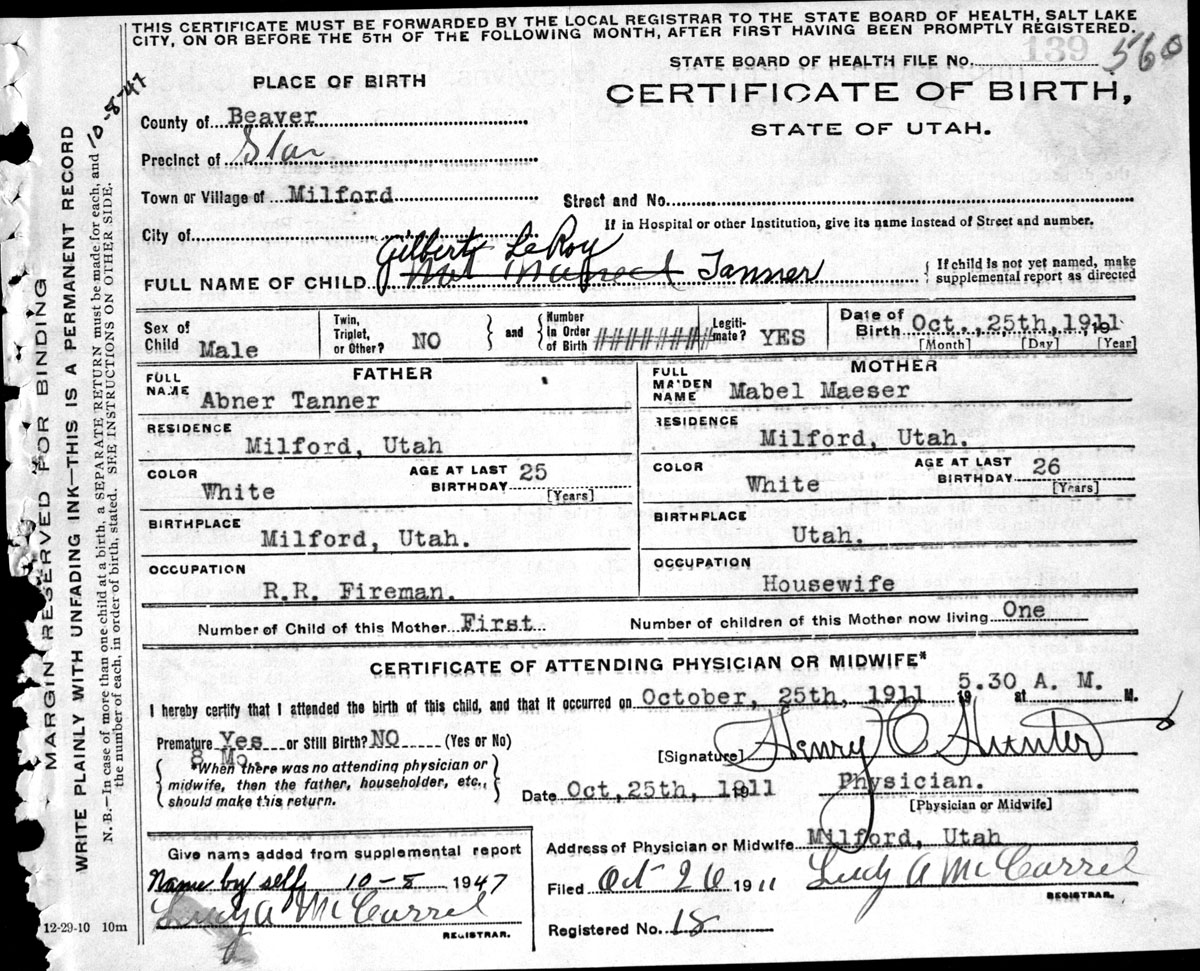 THIS CERTIFICATE MUST BE FORWARDED BY THE LOCAL REGISTRAR TO THE STATE BOARD OF HEALTH, SALT LAKE
CITY, ON OR BEFORE THE 5TH OF THE FOLLOWING MONTH, AFTER FIRST HAVING BEEN PROMPTLY REGISTERED.
139
STATE BOARD OF HEALTH FILE No. 560
PLACE OF BIRTH
CERTIFICATE OF BIRTH,
STATE OF UTAH.
County of Beaver
Precinct of Star
Town or Village of Milford
Street and No.
If in Hospital or other Institution, give its name instead of Street and number.
City of
Gilbert LeRoy
FULL NAME OF CHILD Not Named Tanner
{ If child is not yet named, make
supplemental report as directed
Sex of Child Male
Twin, Triplet, or Other? NO
and
Number in Order of Birth #######
Legiti-mate? YES
Date of Birth Oct., 25th, 1911 19
[Month] [Day] [Year]
FATHER
FULL NAME Abner Tanner
RESIDENCE
Milford, Utah
COLOR White
AGE AT LAST BIRTHDAY 25
[Years]
BIRTHPLACE
Milford, Utah.
OCCUPATION
R.R. Fireman.
MOTHER
FULL MAIDEN NAME Mabel Maeser
RESIDENCE
Milford, Utah.
COLOR White
AGE AT LAST BIRTHDAY 26
[Years]
BIRTHPLACE
Utah.
OCCUPATION
Housewife
Number of Child of this Mother First
Number of children of this Mother now living One
CERTIFICATE OF ATTENDING PHYSICIAN OR MIDWIFE*
I hereby certify that I attended the birth of this child, and that it occurred on October, 25th, 1911 19 5.30 A. M. at M.
Premature Yes or Still Birth? NO (Yes or No)
8 Mo.
{ *When there was no attending physician or
midwife, then the father, householder, etc.,
should make this return. }
[Signature] Henry C Hunter
Date Oct, 25th, 1911 19
Physician.
[Physician or Midwife]
Give name added from supplemental report
Name by self 10-8 1947
Lucy A McCarrel
REGISTRAR.
Address of Physician or Midwife Milford, Utah
Filed Oct 26 1911
Lucy A McCarrel
REGISTRAR.
Registered No. 18
12-29-10 10m
MARGIN RESERVED FOR BINDING
WRITE PLAINLY WITH UNFADING INK—THIS IS A PERMANENT RECORD
N. B.—In case of more than one child at a birth, a SEPARATE RETURN must be made for each, and
the number of each, in order of birth, stated. SEE INSTRUCTIONS ON OTHER SIDE.
10-8-47